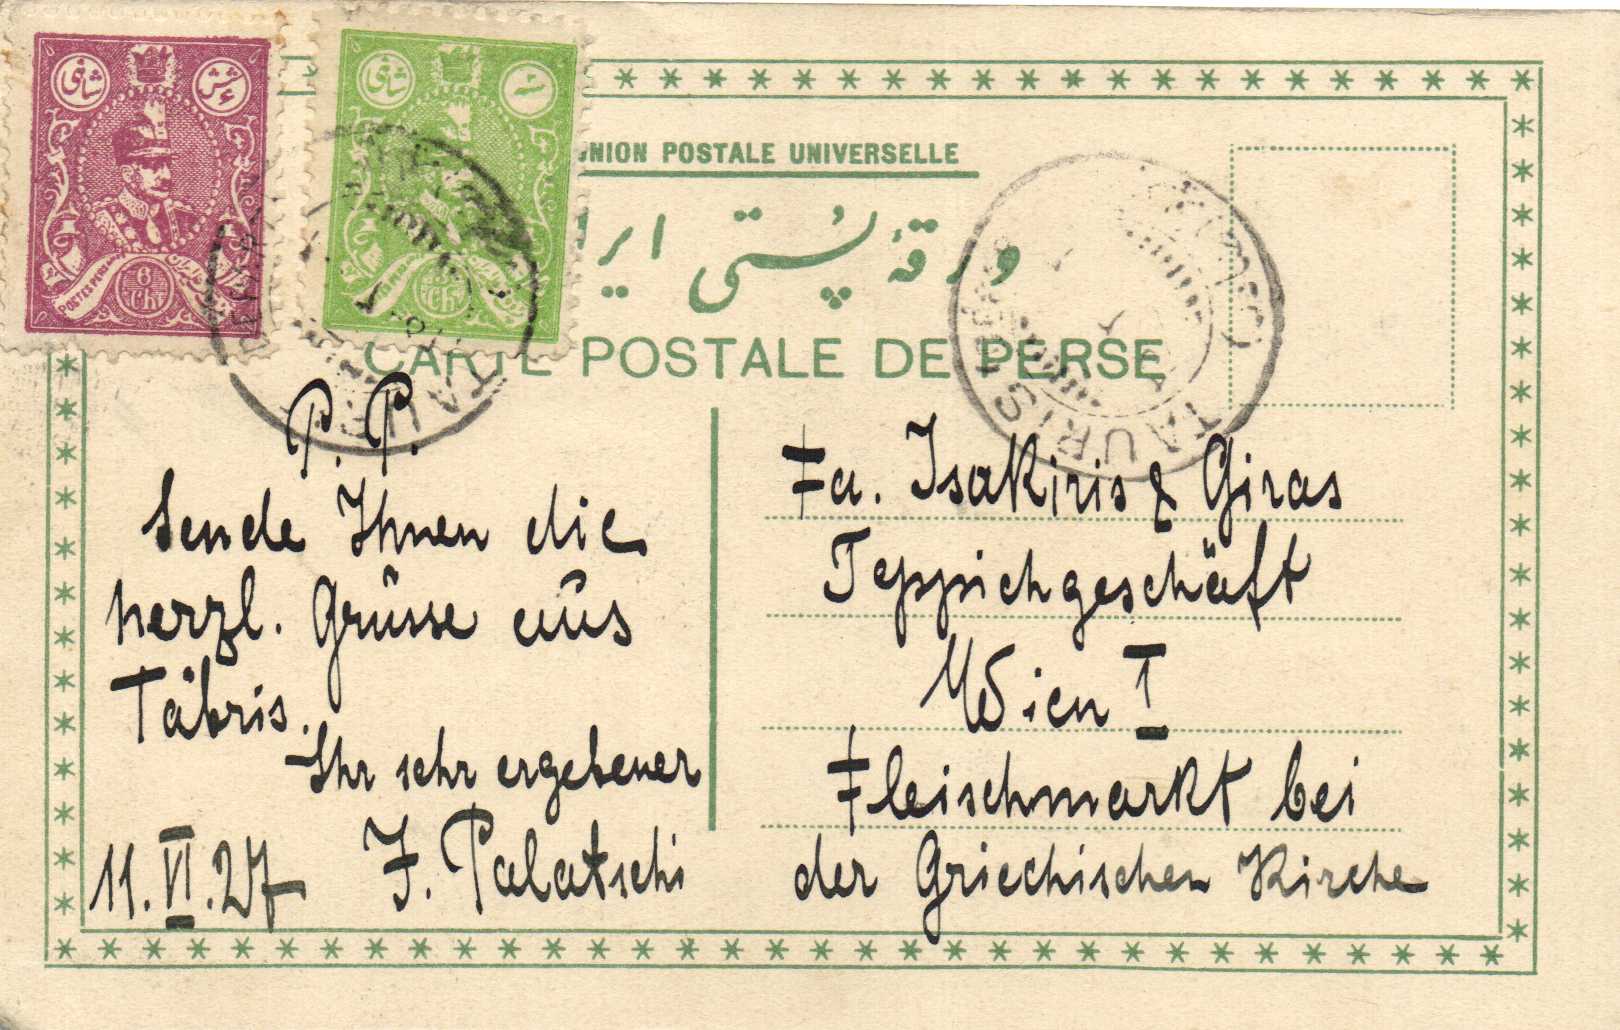 شاهی
شش ۶
6
ch
POSTES PERSANES
شاهی
ch
UNION POSTALE UNIVERSELLE
ورقهٔ پُستی ایران
CARTE POSTALE DE PERSE
TAURIS
TAURIS
P. P.
Sende Ihnen die
herzl. Grüsse aus
Täbris.
Ihr sehr ergebener
11.VI.27 J. Palatschi
Fa. Isakiris & Giras
Teppichgeschäft
Wien I
Fleischmarkt bei
der Griechischen Kirche